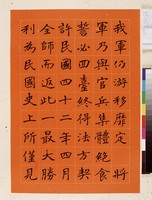 我軍仍游移靡定 將
軍乃與官兵集體絕食
誓必回臺終得法方契
許民國四十二年四月
全師而返此一最大勝
利為民國史上所僅見